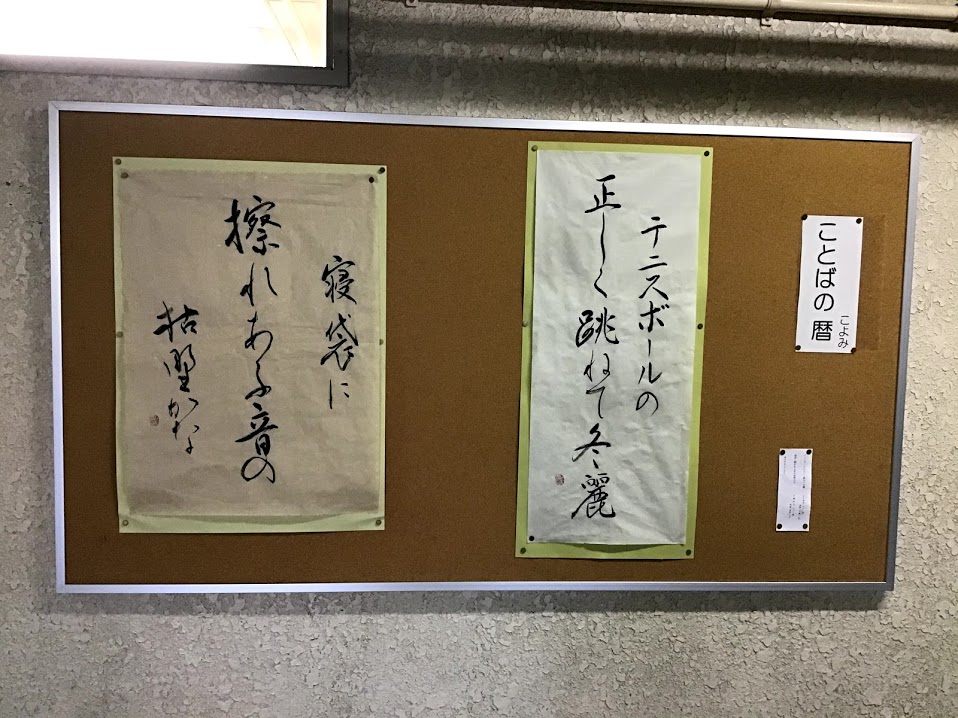 ことばの暦
こよみ
テニスボールの
正しく跳ねて冬麗
寝袋に
擦れあふ音の
枯野かな